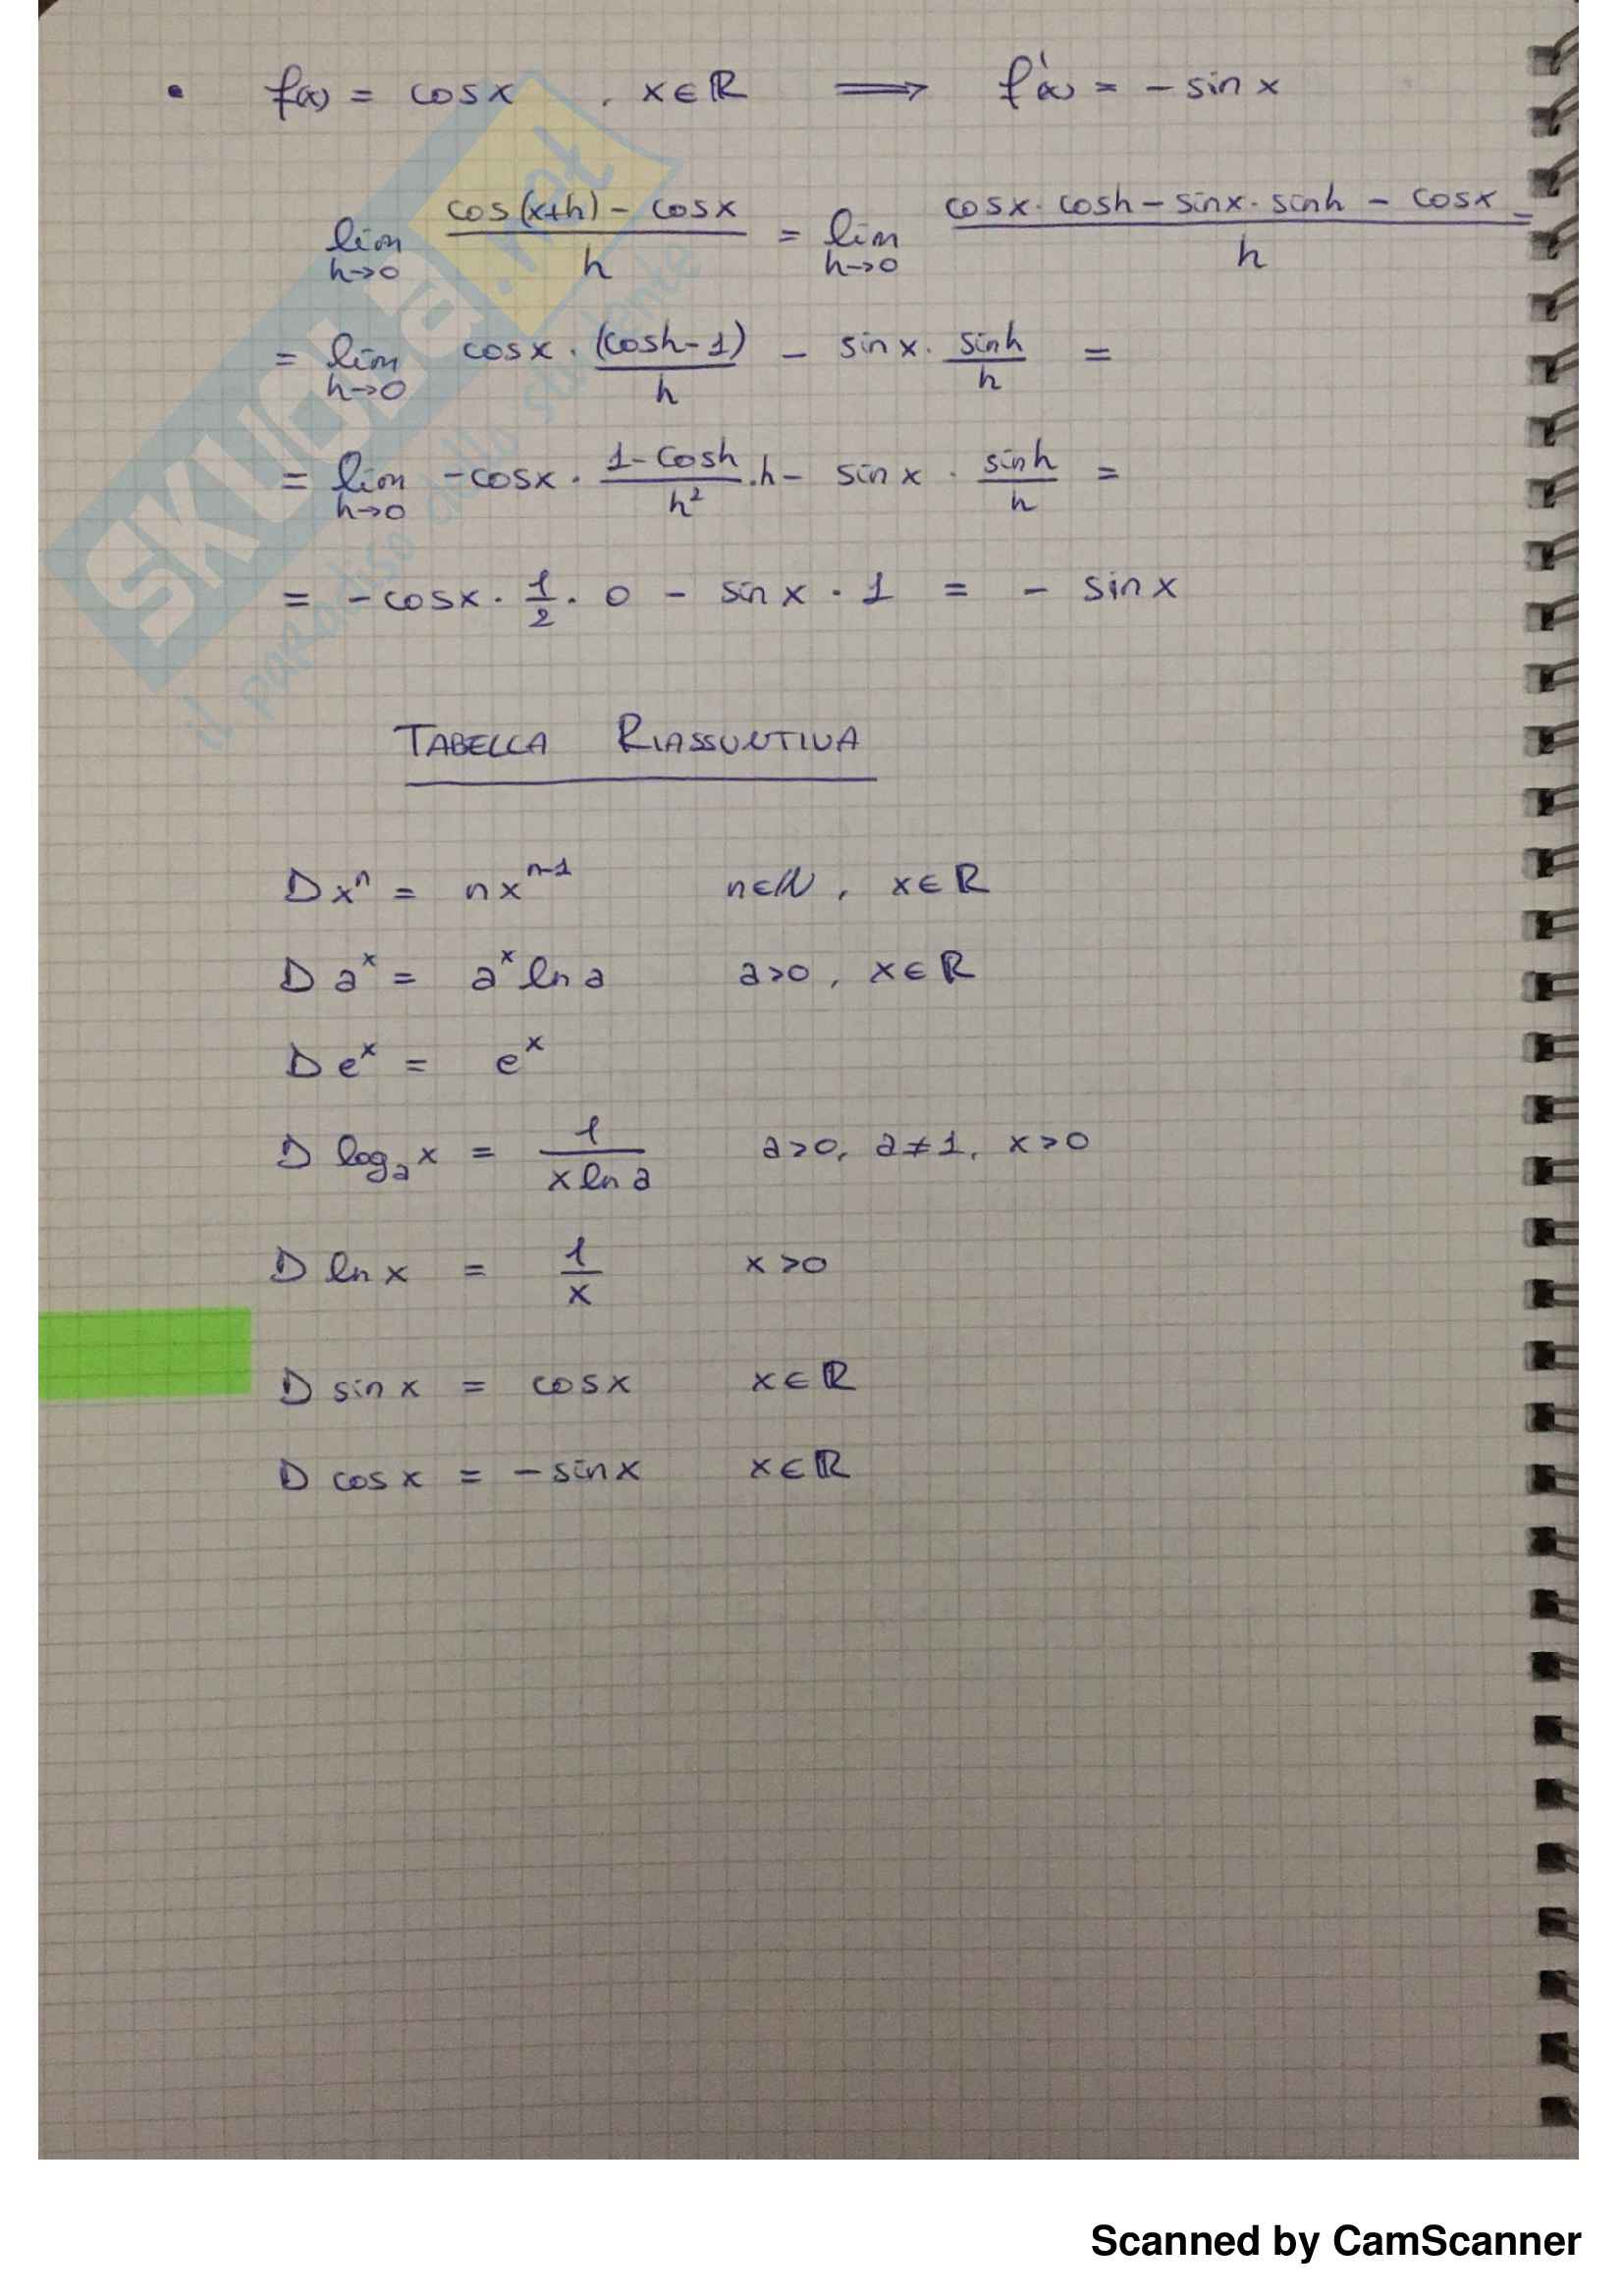 • f(x) = cos x , x∈ℝ ⟹ f'(x) = - sin x
lim h→0 (cos(x+h) - cos x)/h = lim h→0 (cos x · cos h - sin x · sin h - cos x)/h =
= lim h→0 cos x · (cos h - 1)/h - sin x · sin h/h =
= lim h→0 - cos x · (1 - cos h)/h² · h - sin x · sin h/h =
= - cos x · 1/2 · 0 - sin x · 1 = - sin x
TABELLA RIASSUNTIVA
D xⁿ = n xⁿ⁻¹ n∈ℕ , x∈ℝ
D aˣ = aˣ ln a a>0 , x∈ℝ
D eˣ = eˣ
D logₐ x = 1/(x ln a) a>0, a≠1, x>0
D ln x = 1/x x>0
D sin x = cos x x∈ℝ
D cos x = - sin x x∈ℝ
SKUOLA.net
il paradiso dello studente
Scanned by CamScanner